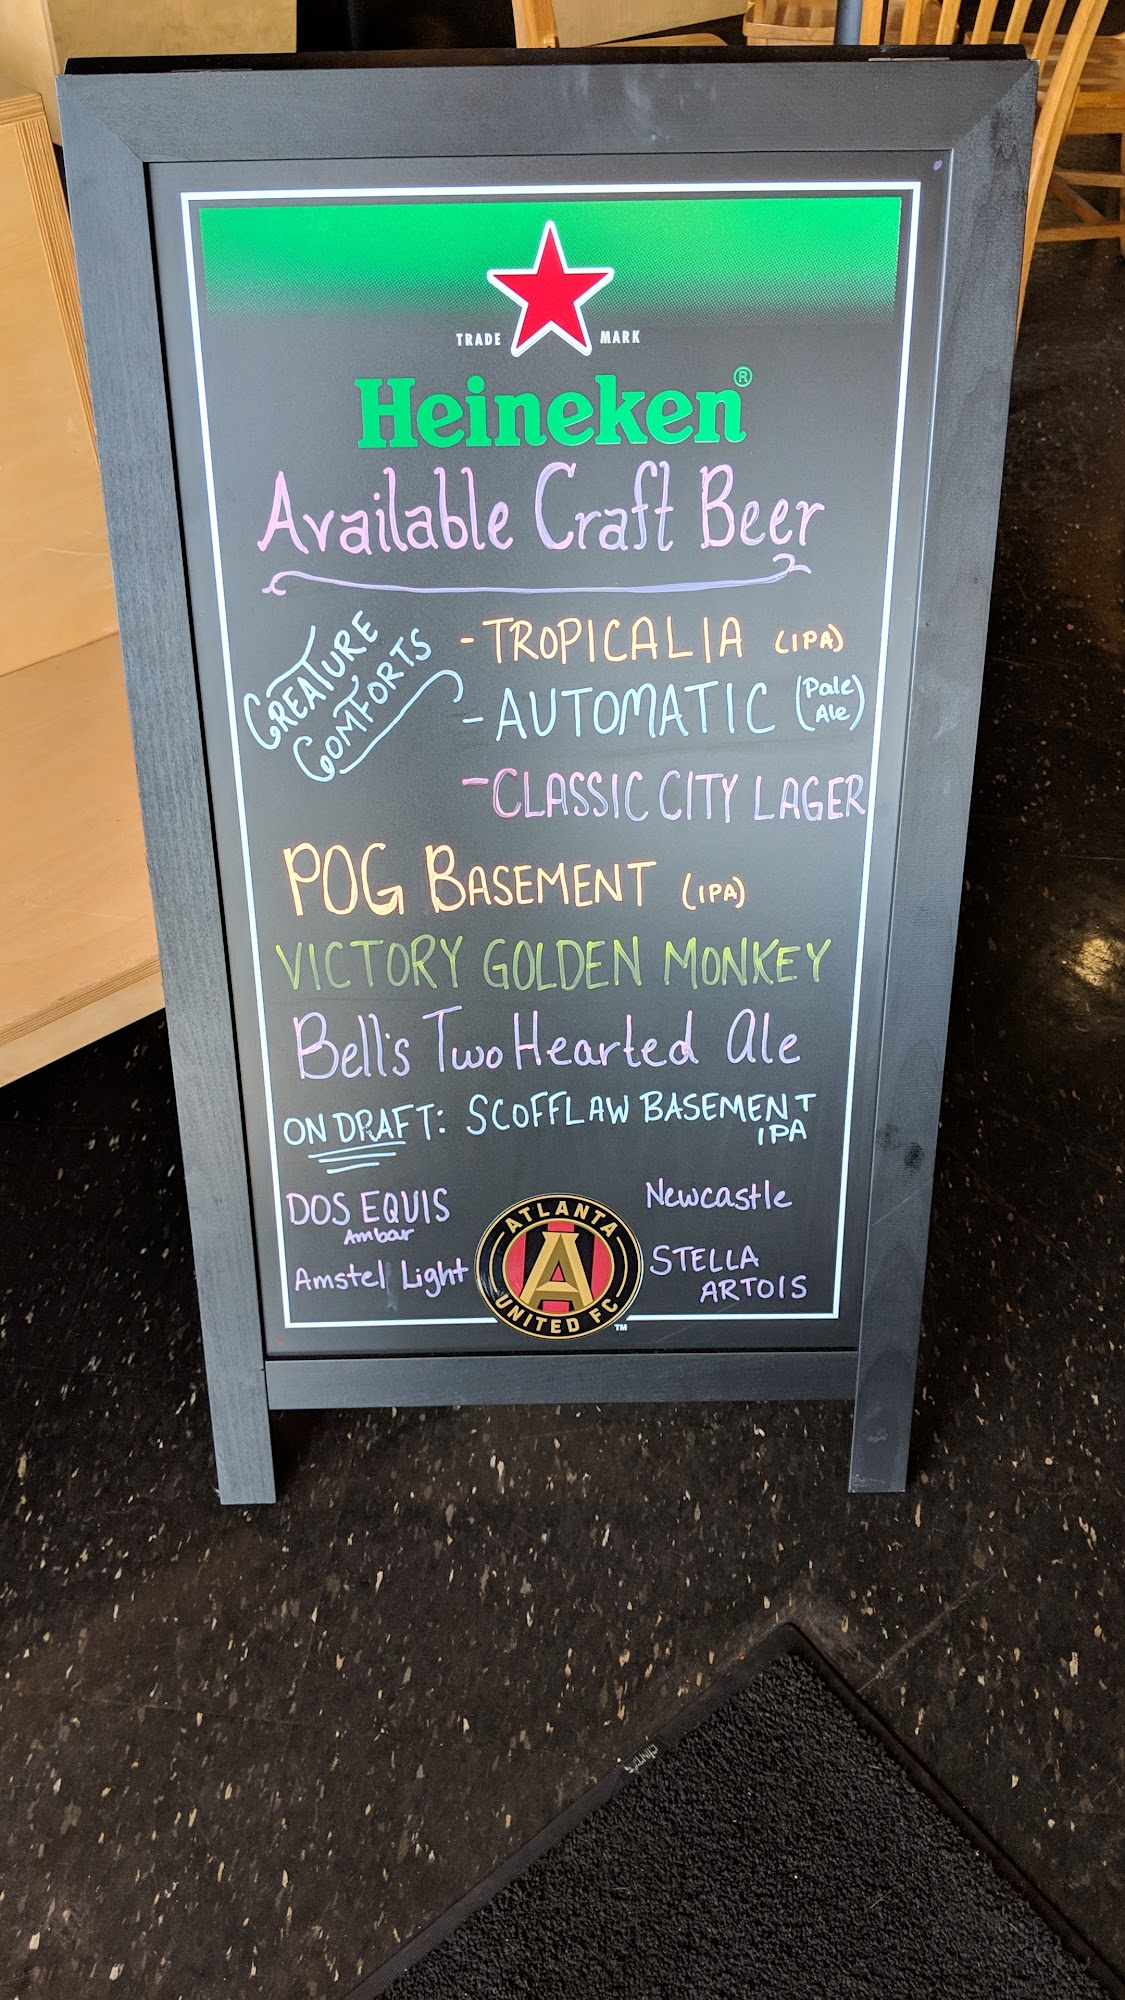 TRADE MARK
Heineken®
Available Craft Beer
CREATURE
COMFORTS
- TROPICALIA (IPA)
- AUTOMATIC (Pale
Ale)
- CLASSIC CITY LAGER
POG BASEMENT (IPA)
VICTORY GOLDEN MONKEY
Bell's Two Hearted Ale
ON DRAFT: SCOFFLAW BASEMENT
IPA
DOS EQUIS
Ambar
Amstel Light
Newcastle
STELLA
ARTOIS
ATLANTA
A
UNITED FC
TM